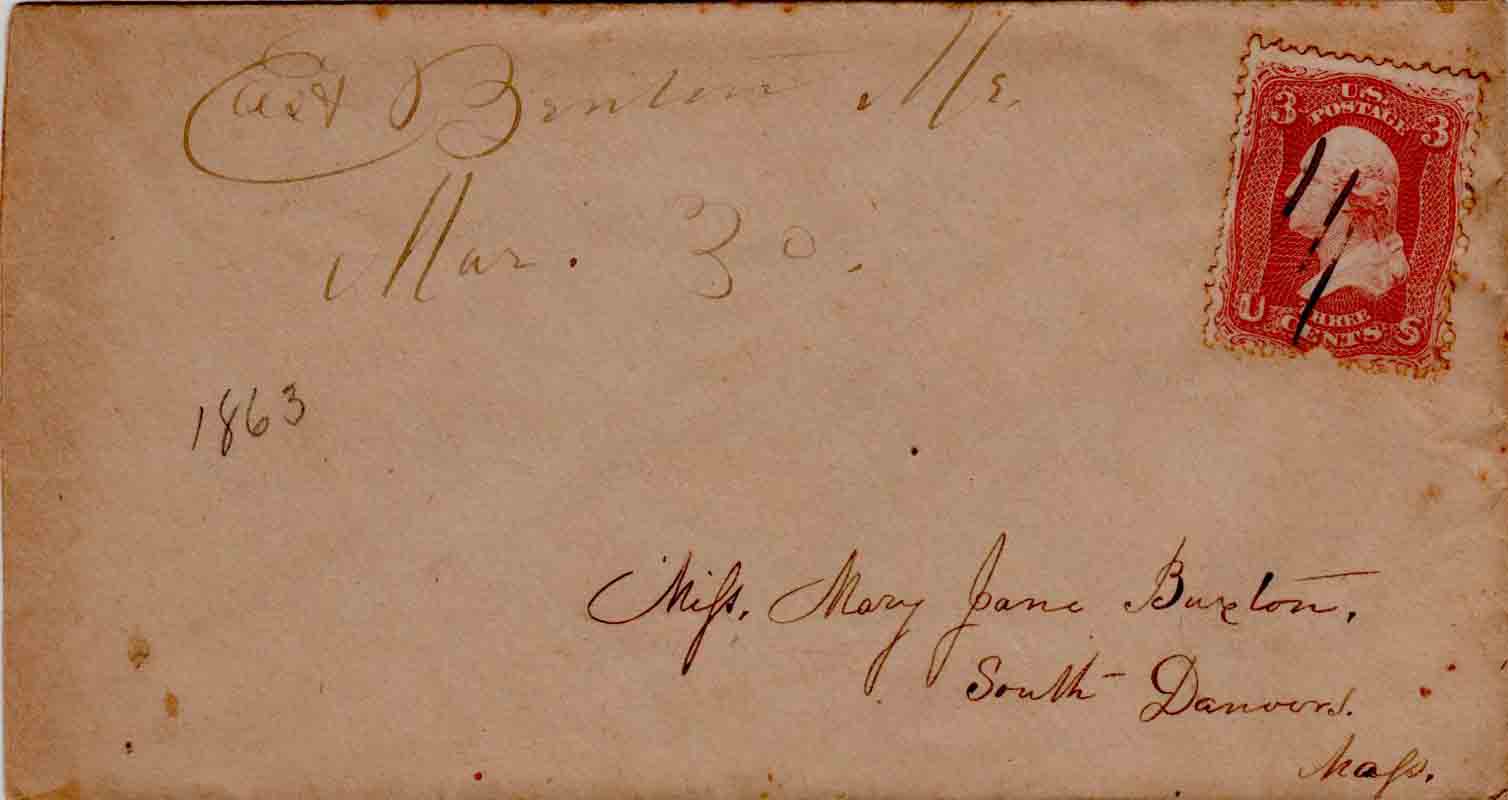 East Benton Me.
Mar. 30.
1863
U.S.
POSTAGE
3 3
THREE
CENTS
U S
Miſs. Mary Jane Buxton,
South Danvers.
Maſs.